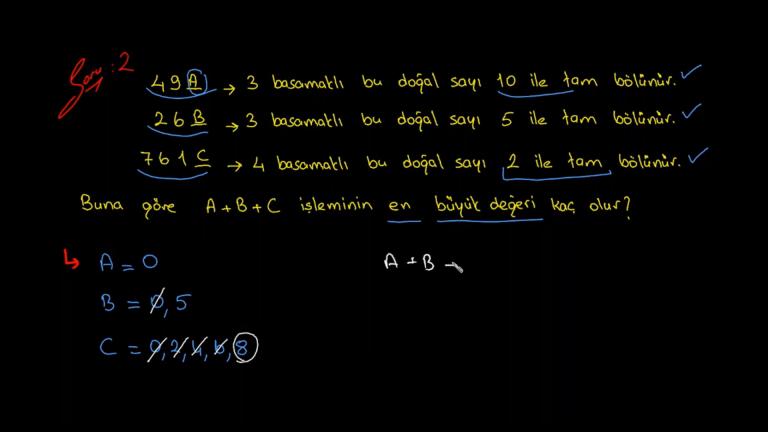 Soru: 2
49A → 3 basamaklı bu doğal sayı 10 ile tam bölünür. ✓
26B → 3 basamaklı bu doğal sayı 5 ile tam bölünür. ✓
761C → 4 basamaklı bu doğal sayı 2 ile tam bölünür. ✓
Buna göre A+B+C işleminin en büyük değeri kaç olur?
↳ A = 0
A + B
B = 0, 5
C = 0, 2, 4, 6, 8